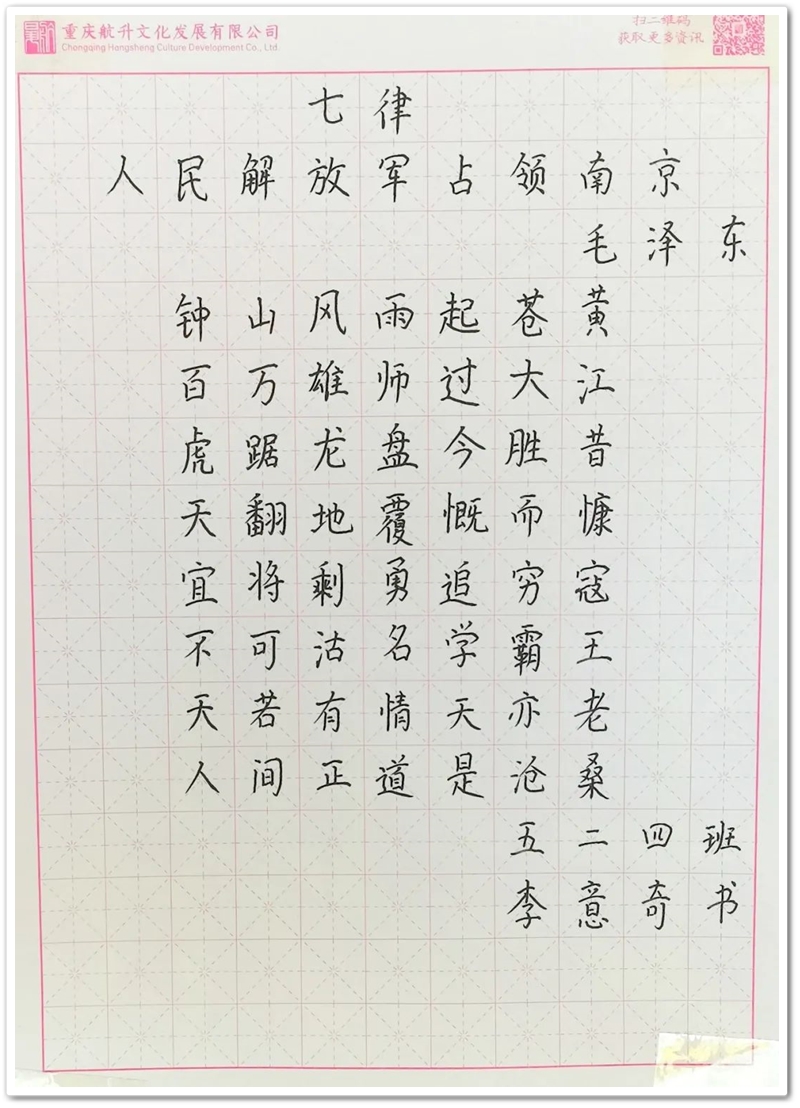 重庆航升文化发展有限公司
Chongqing Hangsheng Culture Development Co., Ltd.
扫二维码
获取更多资讯
七律
人民解放军占领南京
毛泽东
钟山风雨起苍黄
百万雄师过大江
虎踞龙盘今胜昔
天翻地覆慨而慷
宜将剩勇追穷寇
不可沽名学霸王
天若有情天亦老
人间正道是沧桑
五二四班
李意奇书